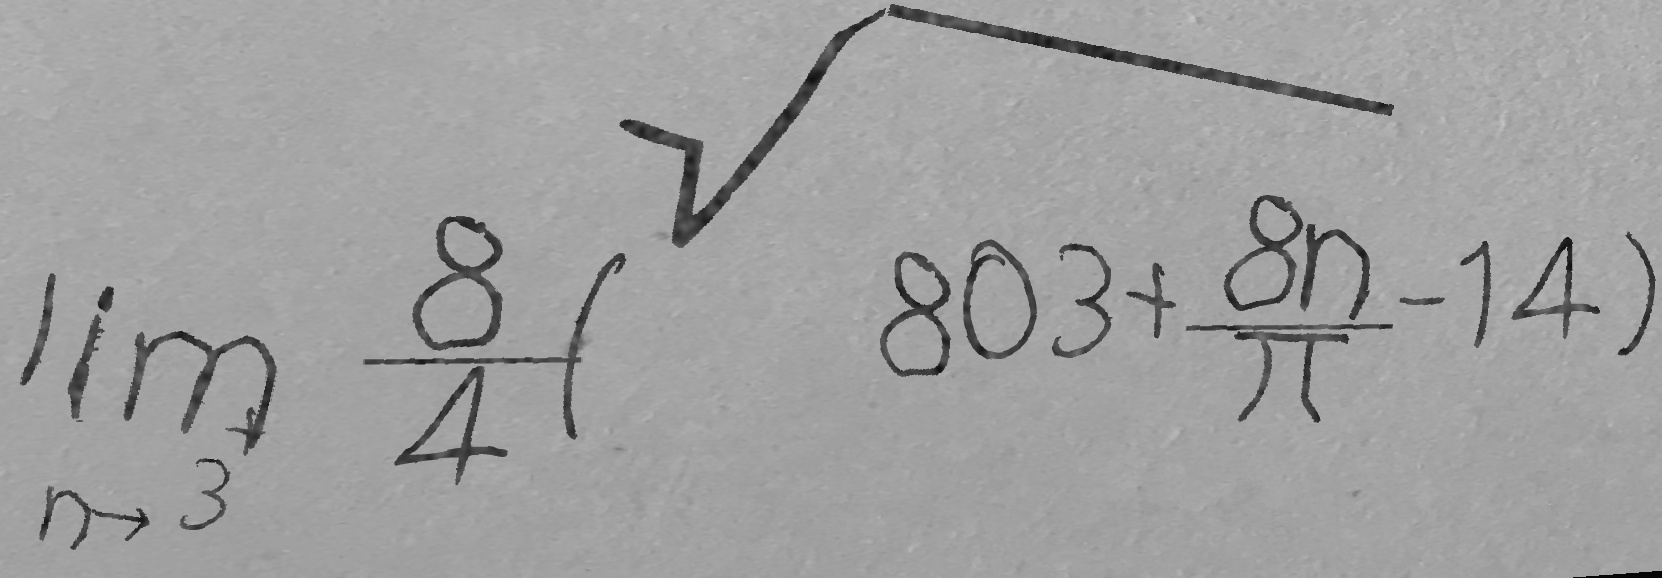 \lim_{n \to 3^+} \frac{8}{4} ( \sqrt{803 + \frac{8n}{\pi}} - 14 )